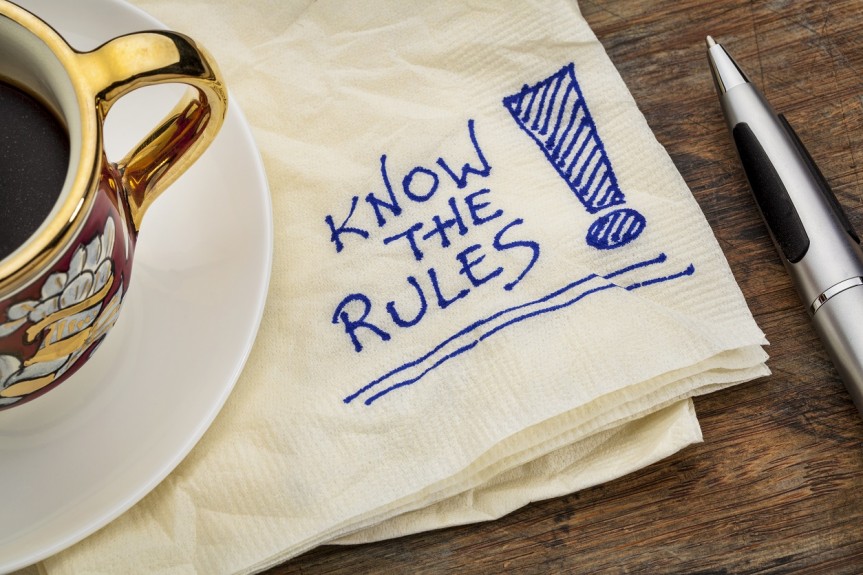 KNOW
THE
RULES!